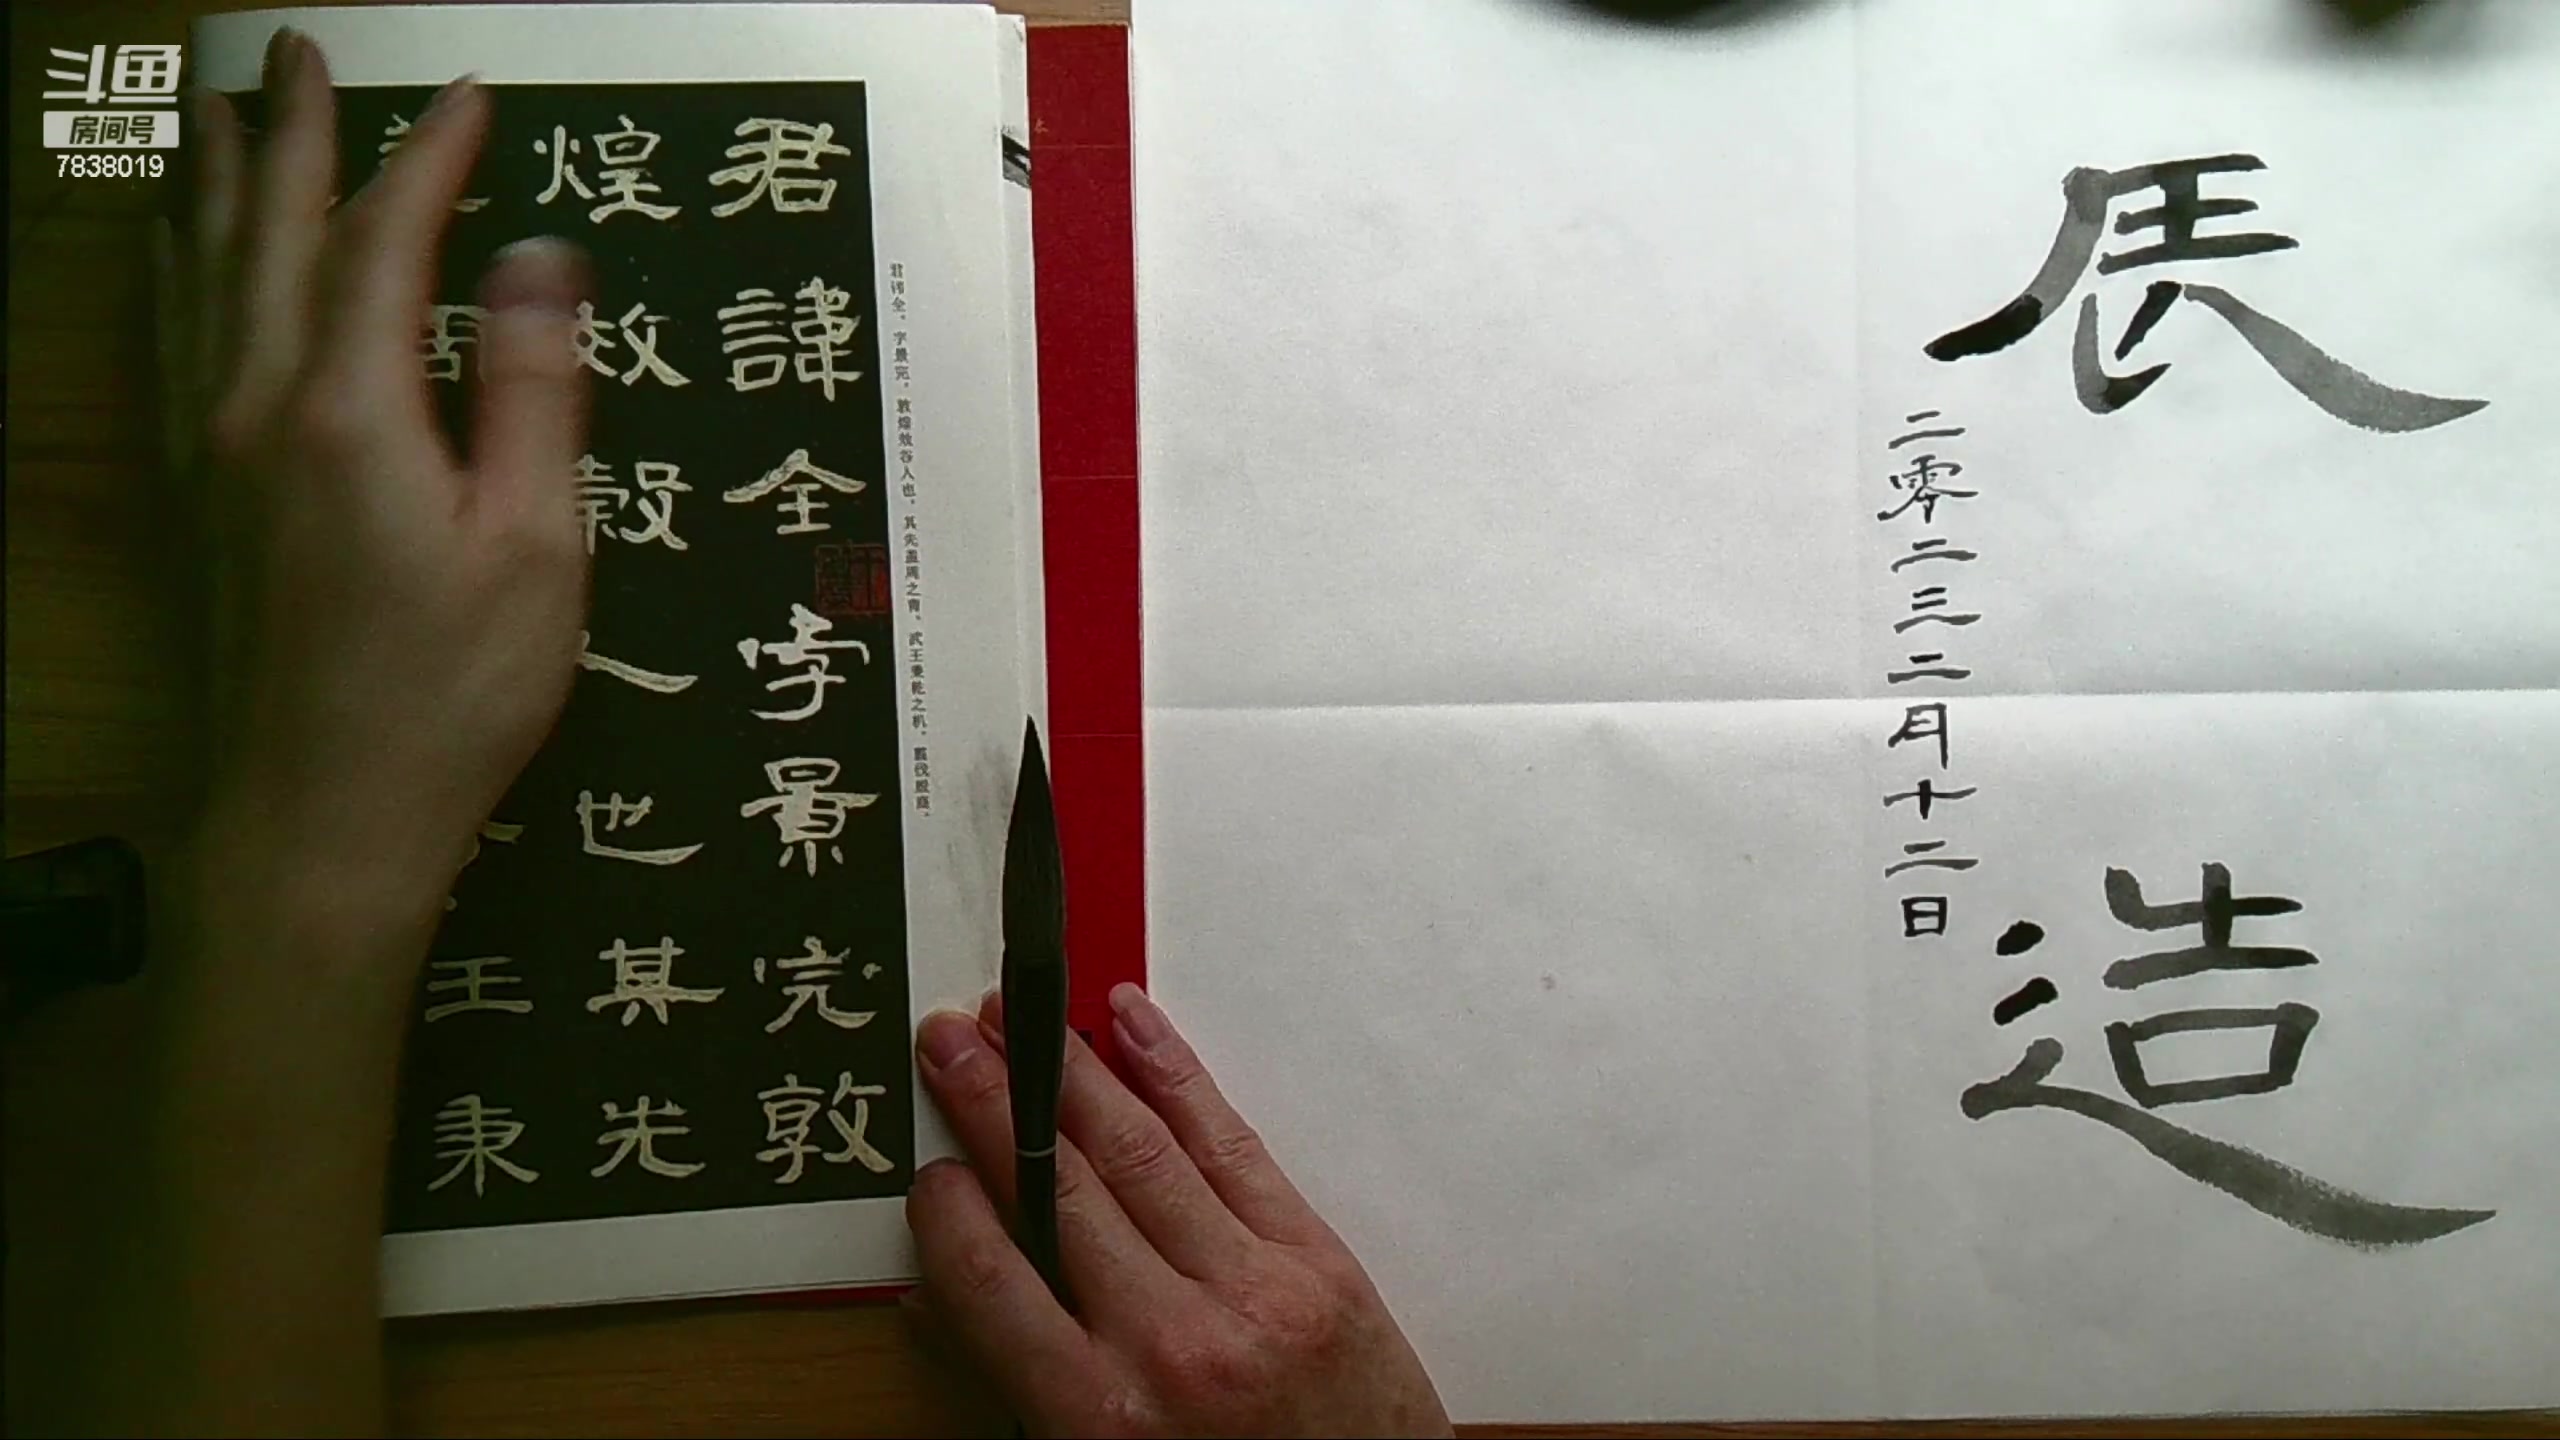 斗鱼
房间号
7838019
君諱全字景完敦
煌效穀人也其先
王秉
君讳全，字景完，敦煌效谷人也。其先盖周之胄，武王秉乾之机，翦伐殷商，
造
二零二三二月十二日